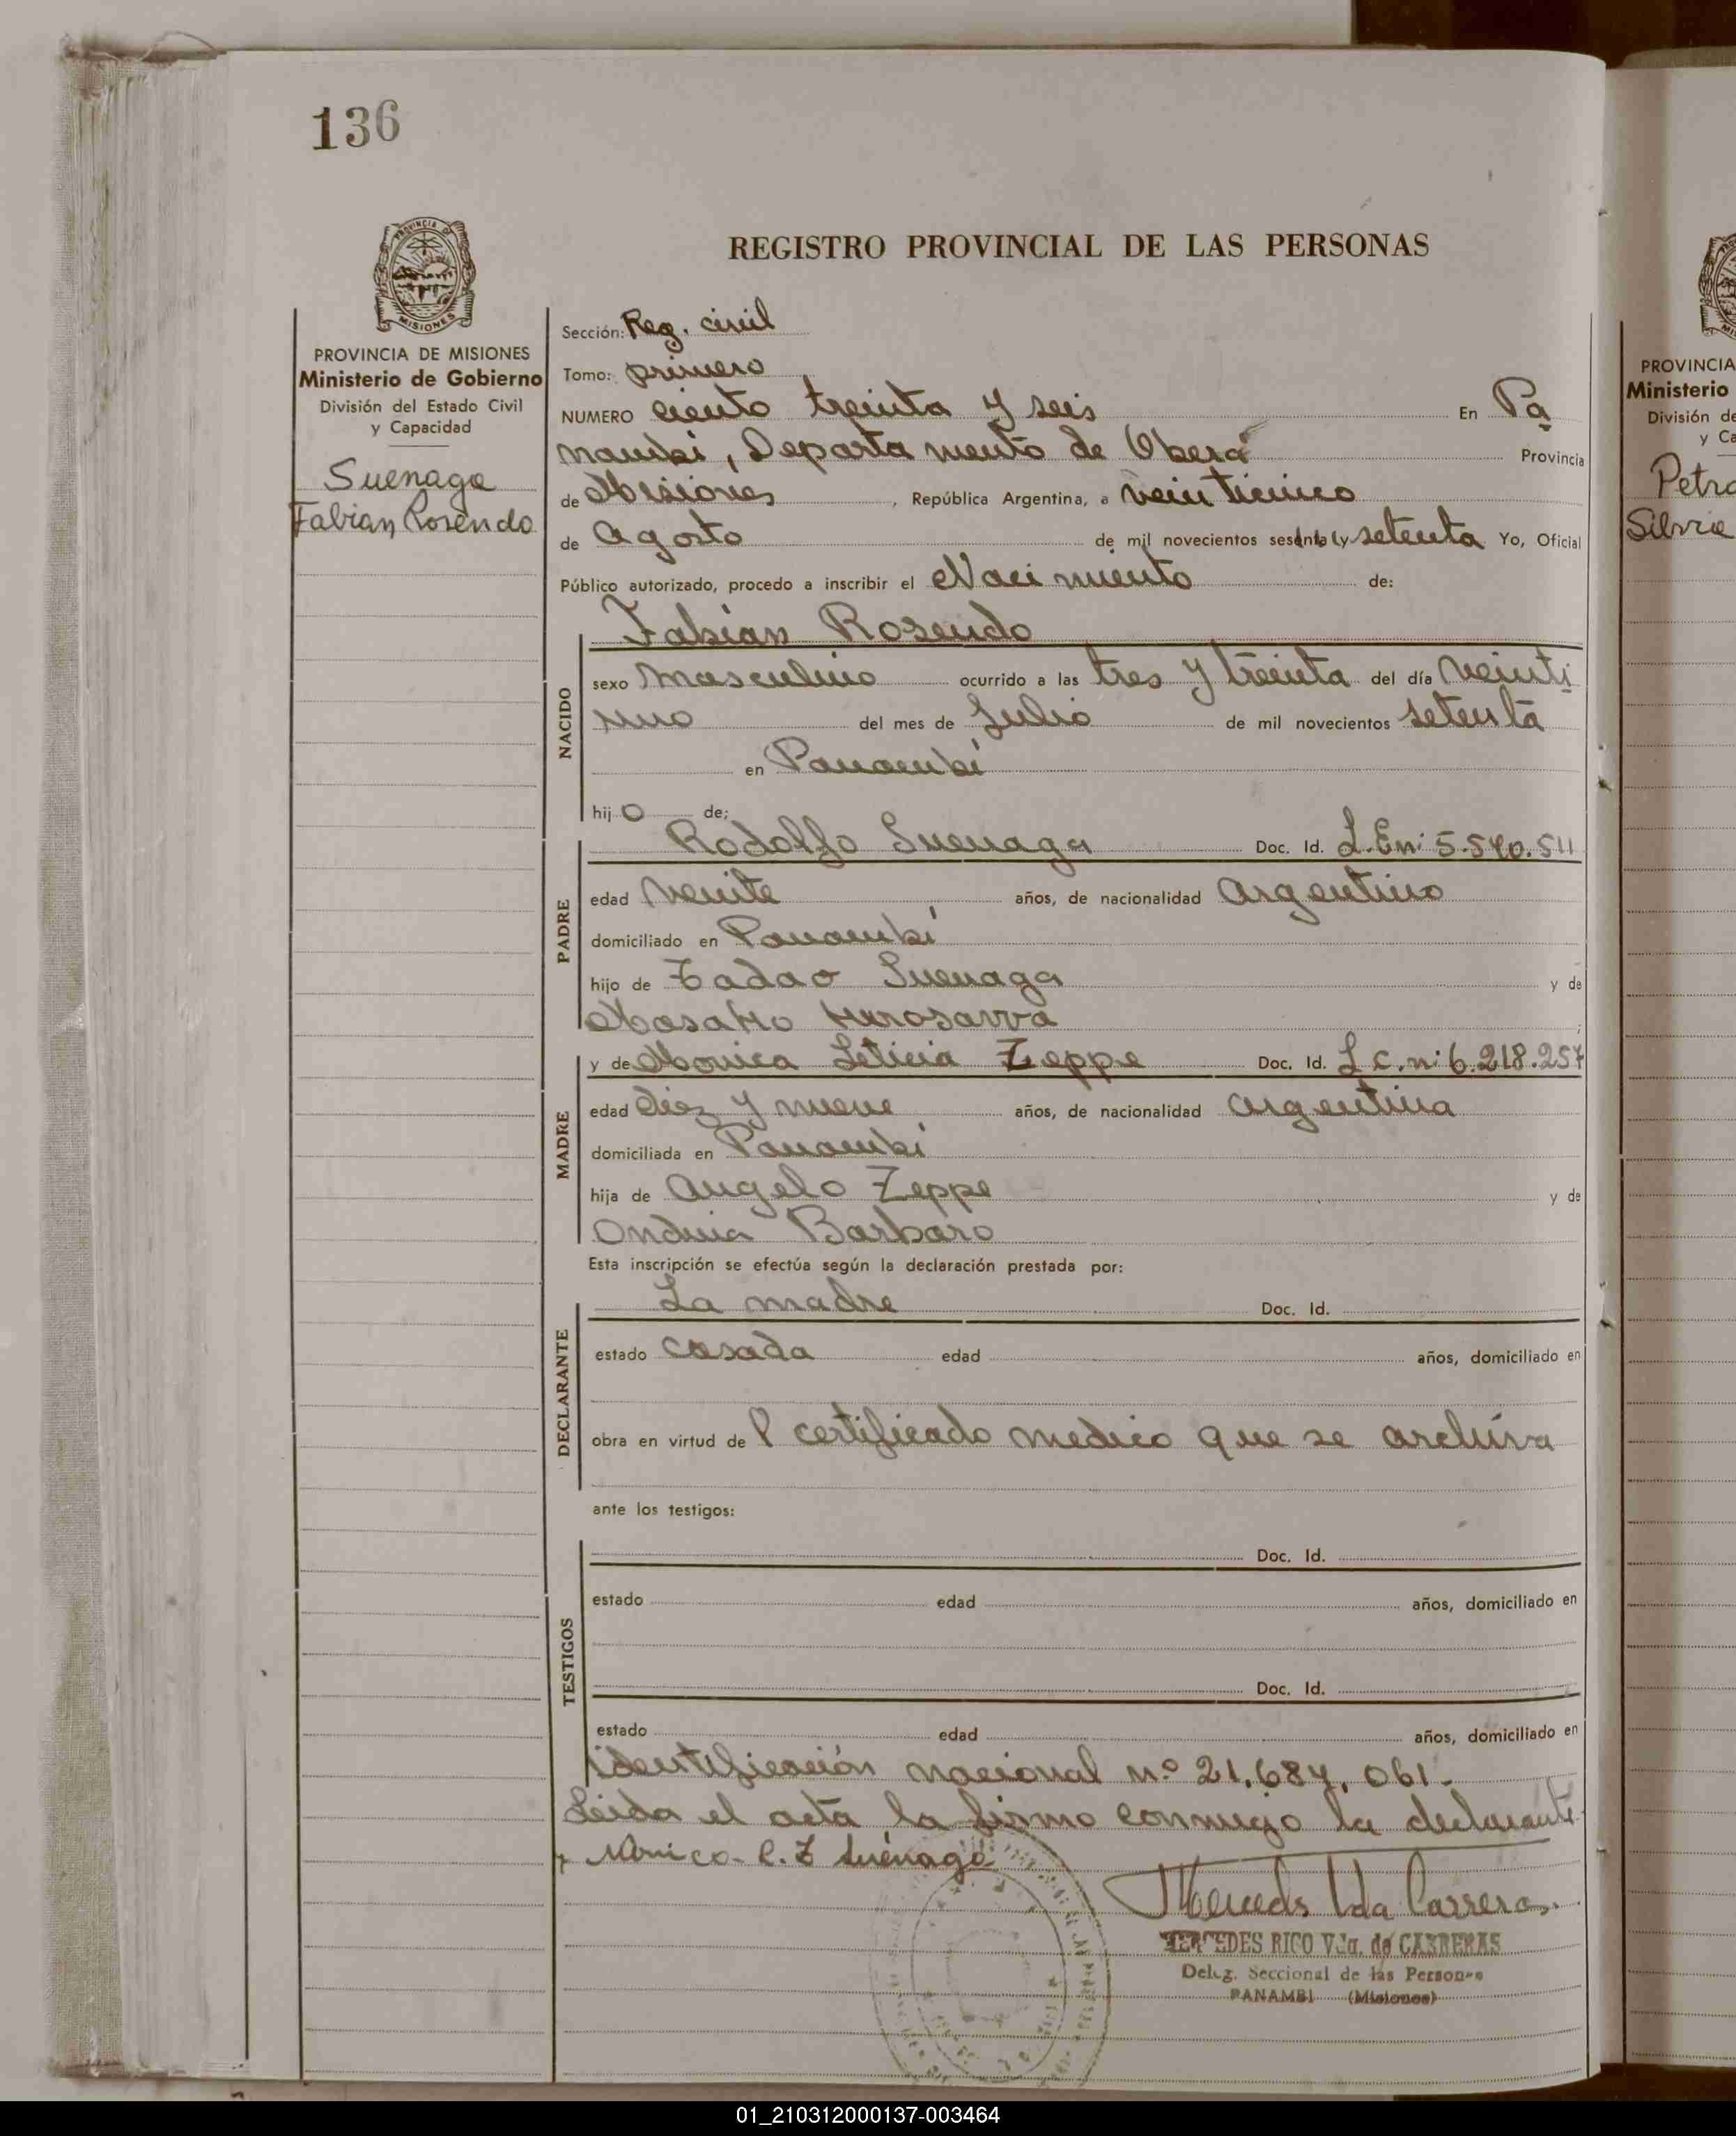 136
REGISTRO PROVINCIAL DE LAS PERSONAS
PROVINCIA DE MISIONES
Ministerio de Gobierno
División del Estado Civil
y Capacidad
Suenaga
Fabian Rosendo
Sección: Reg. civil
Tomo: primero
NUMERO ciento treinta y seis En Pa
nambi, Departamento de Oberá Provincia
de Misiones, República Argentina, a veinticinco
de Agosto de mil novecientos sesenta y setenta Yo, Oficial
Público autorizado, procedo a inscribir el Nacimiento de:
Fabian Rosendo
NACIDO
sexo masculino ocurrido a las tres y treinta del día veinti
uno del mes de Julio de mil novecientos setenta
en Panambí
hijo de;
PADRE
Rodolfo Suenaga Doc. Id. L.E.n: 5.540.511
edad veinte años, de nacionalidad argentino
domiciliado en Panambí
hijo de Tadao Suenaga y de
MADRE
y de Monica Leticia Zeppe Doc. Id. L.C.n: 6.218.257
edad diez y nueve años, de nacionalidad argentina
domiciliada en Panambí
hija de Angelo Zeppe y de
Ondina Barbaro
Esta inscripción se efectúa según la declaración prestada por:
DECLARANTE
La madre Doc. Id.
estado casada edad años, domiciliado en
obra en virtud del certificado medico que se archiva
ante los testigos:
TESTIGOS
Doc. Id.
estado edad años, domiciliado en
Doc. Id.
estado edad años, domiciliado en
identificación nacional n.º 21.684.061.
Leida el acta la firmo conmigo la declarante
Monica L. Z Suenaga
Mercedes Vda Carreras
MERCEDES RICO Vda. de CARRERAS
Deleg. Seccional de las Personas
PANAMBI (Misiones)
PROVINCIA
Ministerio
División de
y Ca
Petro
Silvia
01_210312000137-003464